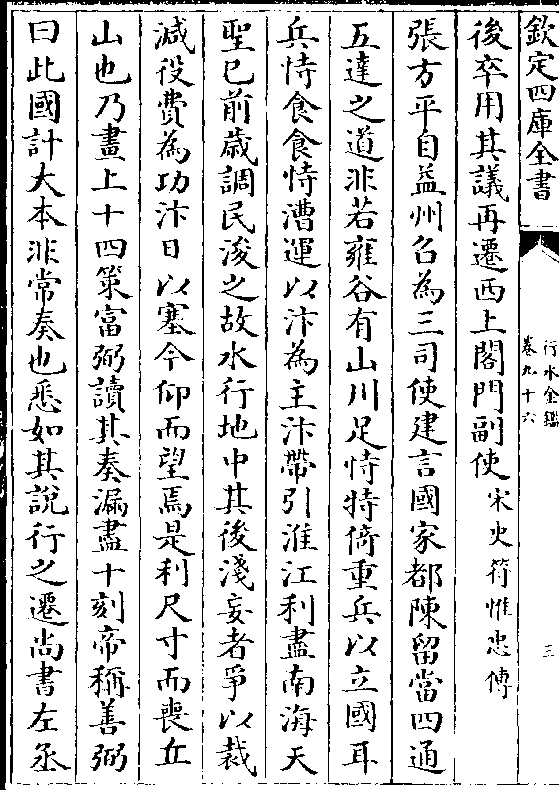 欽定四庫全書
行水金鑑
卷九十六
三
後卒用其議再遷西上閤門副使宋史符惟忠傳
張方平自益州召為三司使建言國家都陳留當四通
五達之道非若雍谷有山川足恃特倚重兵以立國耳
兵恃食食恃漕運以汴為主汴帶引淮江利盡南海天
聖已前歲調民浚之故水行地中其後淺妄者爭以裁
減役費為功汴日以塞今仰而望焉是利尺寸而喪丘
山也乃畫上十四策富弼讀其奏漏盡十刻帝稱善弼
曰此國計大本非常奏也悉如其說行之遷尚書左丞